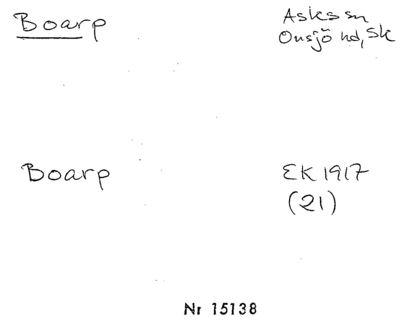 Boarp Asks sn
Onsjö hd, Sk
Boarp EK 1917
(21)
Nr 15138